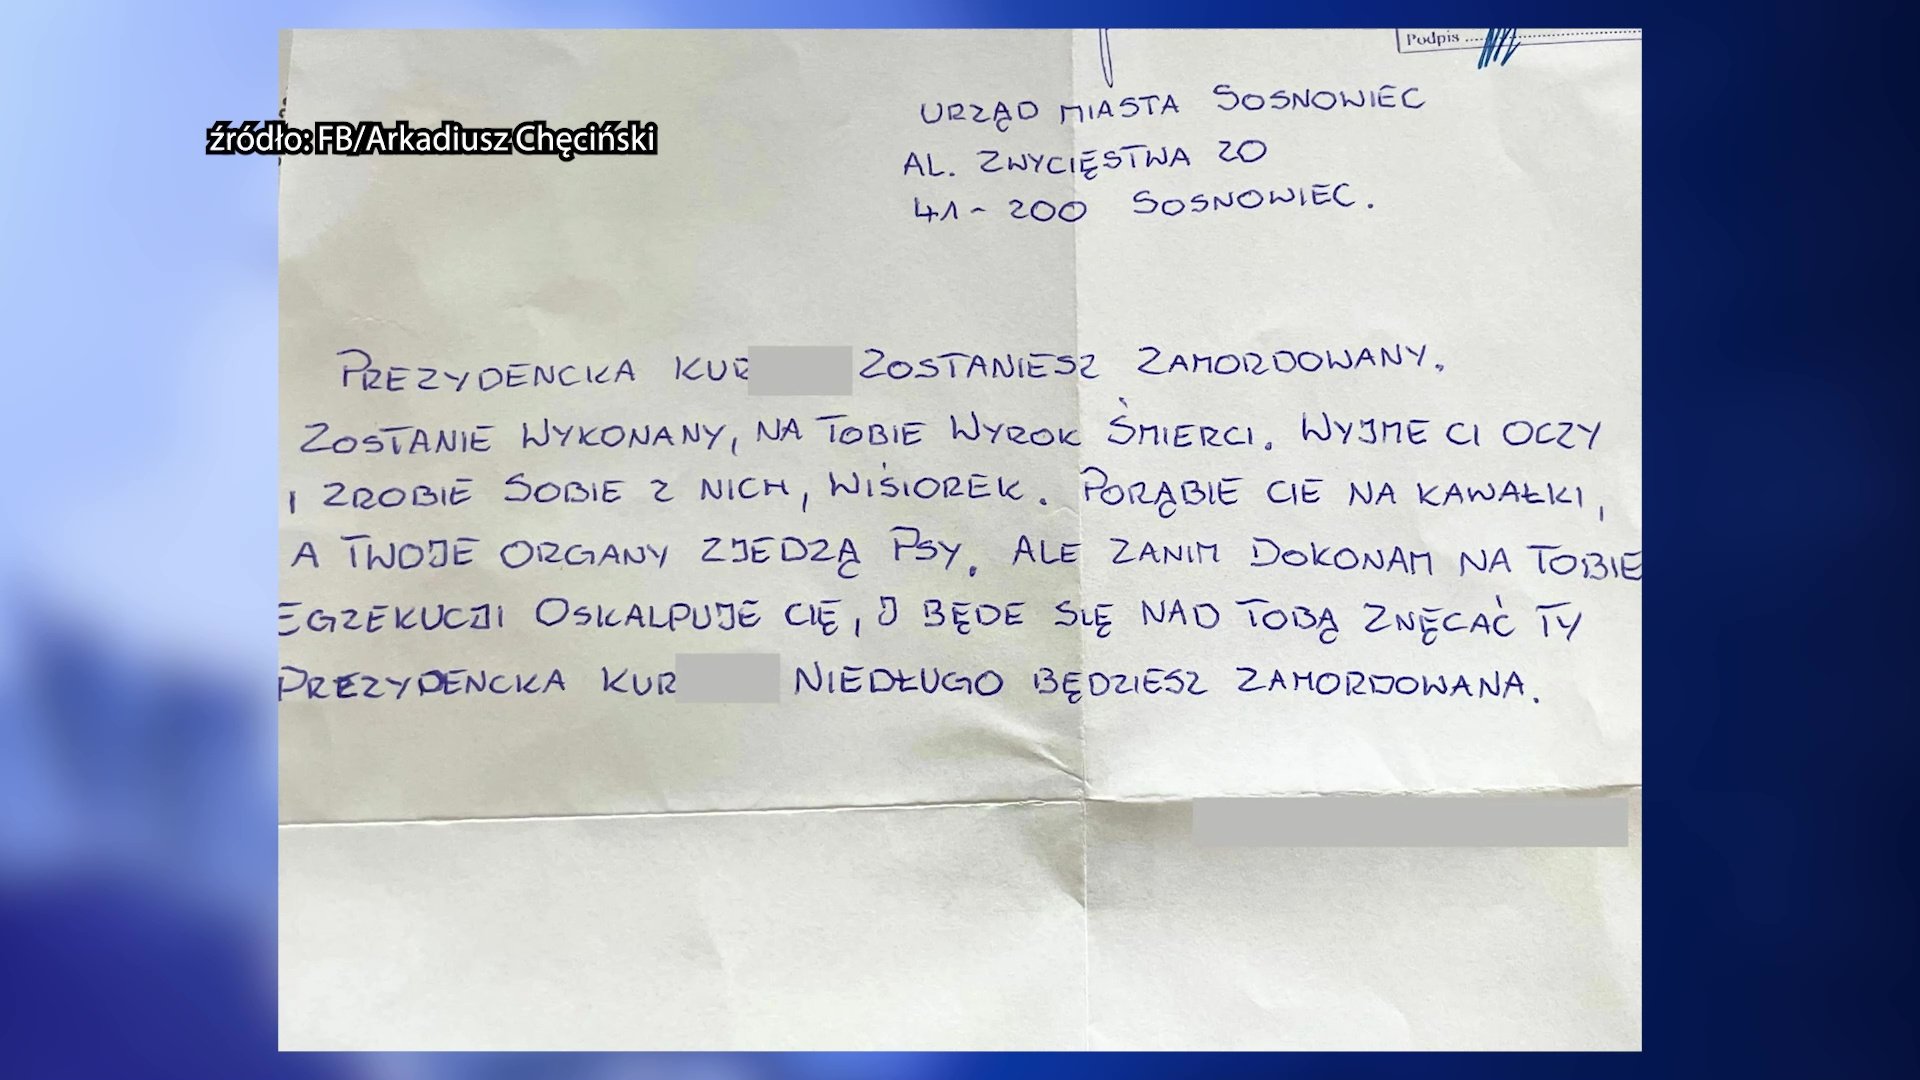 Podpis
źródło: FB/Arkadiusz Chęciński
URZĄD MIASTA SOSNOWIEC
AL. ZWYCIĘSTWA 20
41-200 SOSNOWIEC.
PREZYDENCKA KUR ZOSTANIESZ ZAMORDOWANY.
ZOSTANIE WYKONANY, NA TOBIE WYROK ŚMIERCI. WYJME CI OCZY
I ZROBIE SOBIE Z NICH, WIŚIOREK. PORĄBIE CIE NA KAWAŁKI,
A TWOJE ORGANY ZJEDZĄ PSY. ALE ZANIM DOKONAM NA TOBIE
EGZEKUCJI OSKALPUJE CIĘ, I BĘDE SIĘ NAD TOBĄ ZNĘCAĆ TY
PREZYDENCKA KUR NIEDŁUGO BĘDZIESZ ZAMORDOWANA.